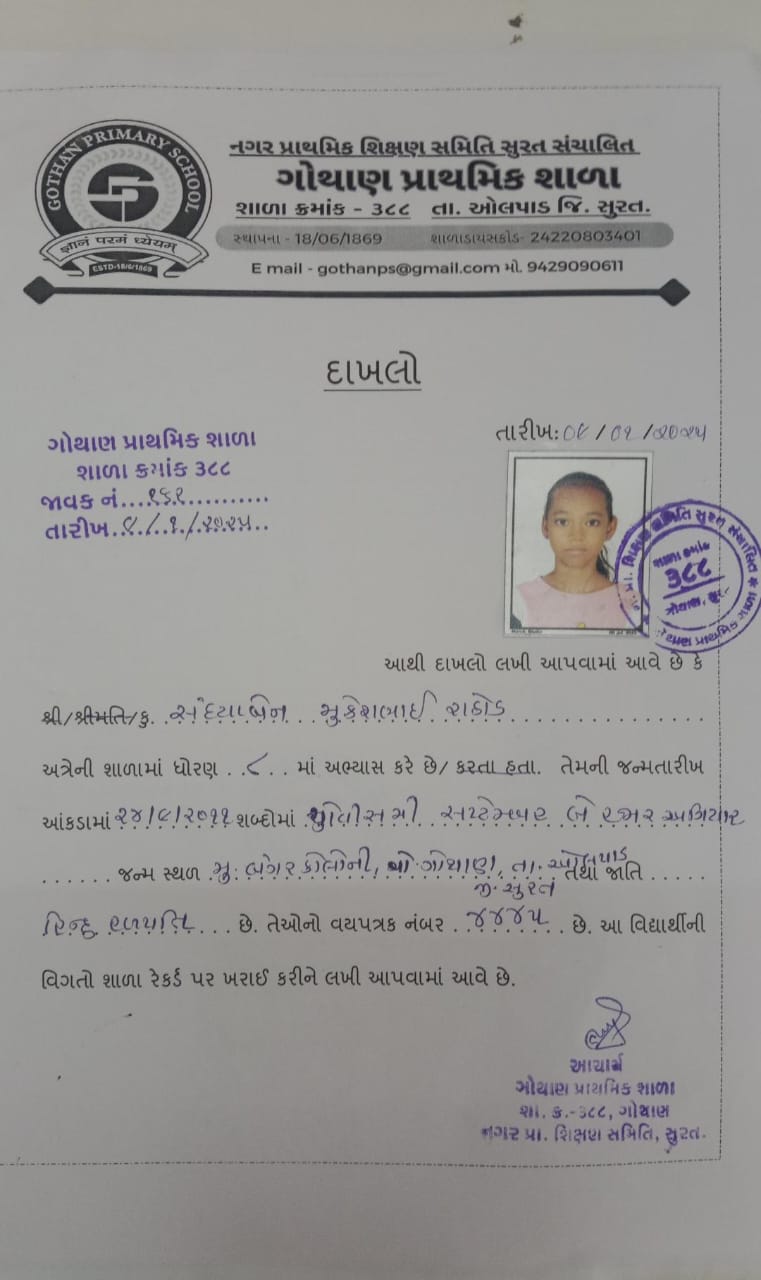 GOTHAN PRIMARY SCHOOL
ज्ञानं परमं ध्येयम्
ESTD-18/6/1869
નગર પ્રાથમિક શિક્ષણ સમિતિ સુરત સંચાલિત
ગોથાણ પ્રાથમિક શાળા
શાળા ક્રમાંક - ૩૮૮ તા. ઓલપાડ જિ. સુરત.
સ્થાપના - 18/06/1869 શાળાડાયસકોડ- 24220803401
E mail - gothanps@gmail.com મો. 9429090611
દાખલો
ગોથાણ પ્રાથમિક શાળા
શાળા ક્રમાંક ૩૮૮
જાવક નં....૧૬૧...........
તારીખ..૯./.૧./.૨૦૨૫..
તારીખ: ૦૯ / ૦૧ / ૨૦૨૫
શાળા ક્રમાંક
૩૮૮
ગોથાણ, સુરત
આથી દાખલો લખી આપવામાં આવે છે કે
શ્રી/શ્રીમતિ/કુ. સંધ્યાબેન મુકેશભાઈ રાઠોડ
અત્રેની શાળામાં ધોરણ ..૮.. માં અભ્યાસ કરે છે/ કરતા હતા. તેમની જન્મતારીખ
આંકડામાં ૨૪/૯/૨૦૧૧ શબ્દોમાં ચોવીસમી સપ્ટેમ્બર બે હજાર અગિયાર
...... જન્મ સ્થળ મુ. બેગર કોલોની, પો. ગોથાણ, તા. ઓલપાડ જી. સુરત તથા જાતિ .....
હિન્દુ હળપતિ ... છે. તેઓનો વયપત્રક નંબર ..૪૪૪૫.. છે. આ વિદ્યાર્થીની
વિગતો શાળા રેકર્ડ પર ખરાઈ કરીને લખી આપવામાં આવે છે.
આચાર્ય
ગોથાણ પ્રાથમિક શાળા
શા. ક્ર.-૩૮૮, ગોથાણ
નગર પ્રા. શિક્ષણ સમિતિ, સુરત.